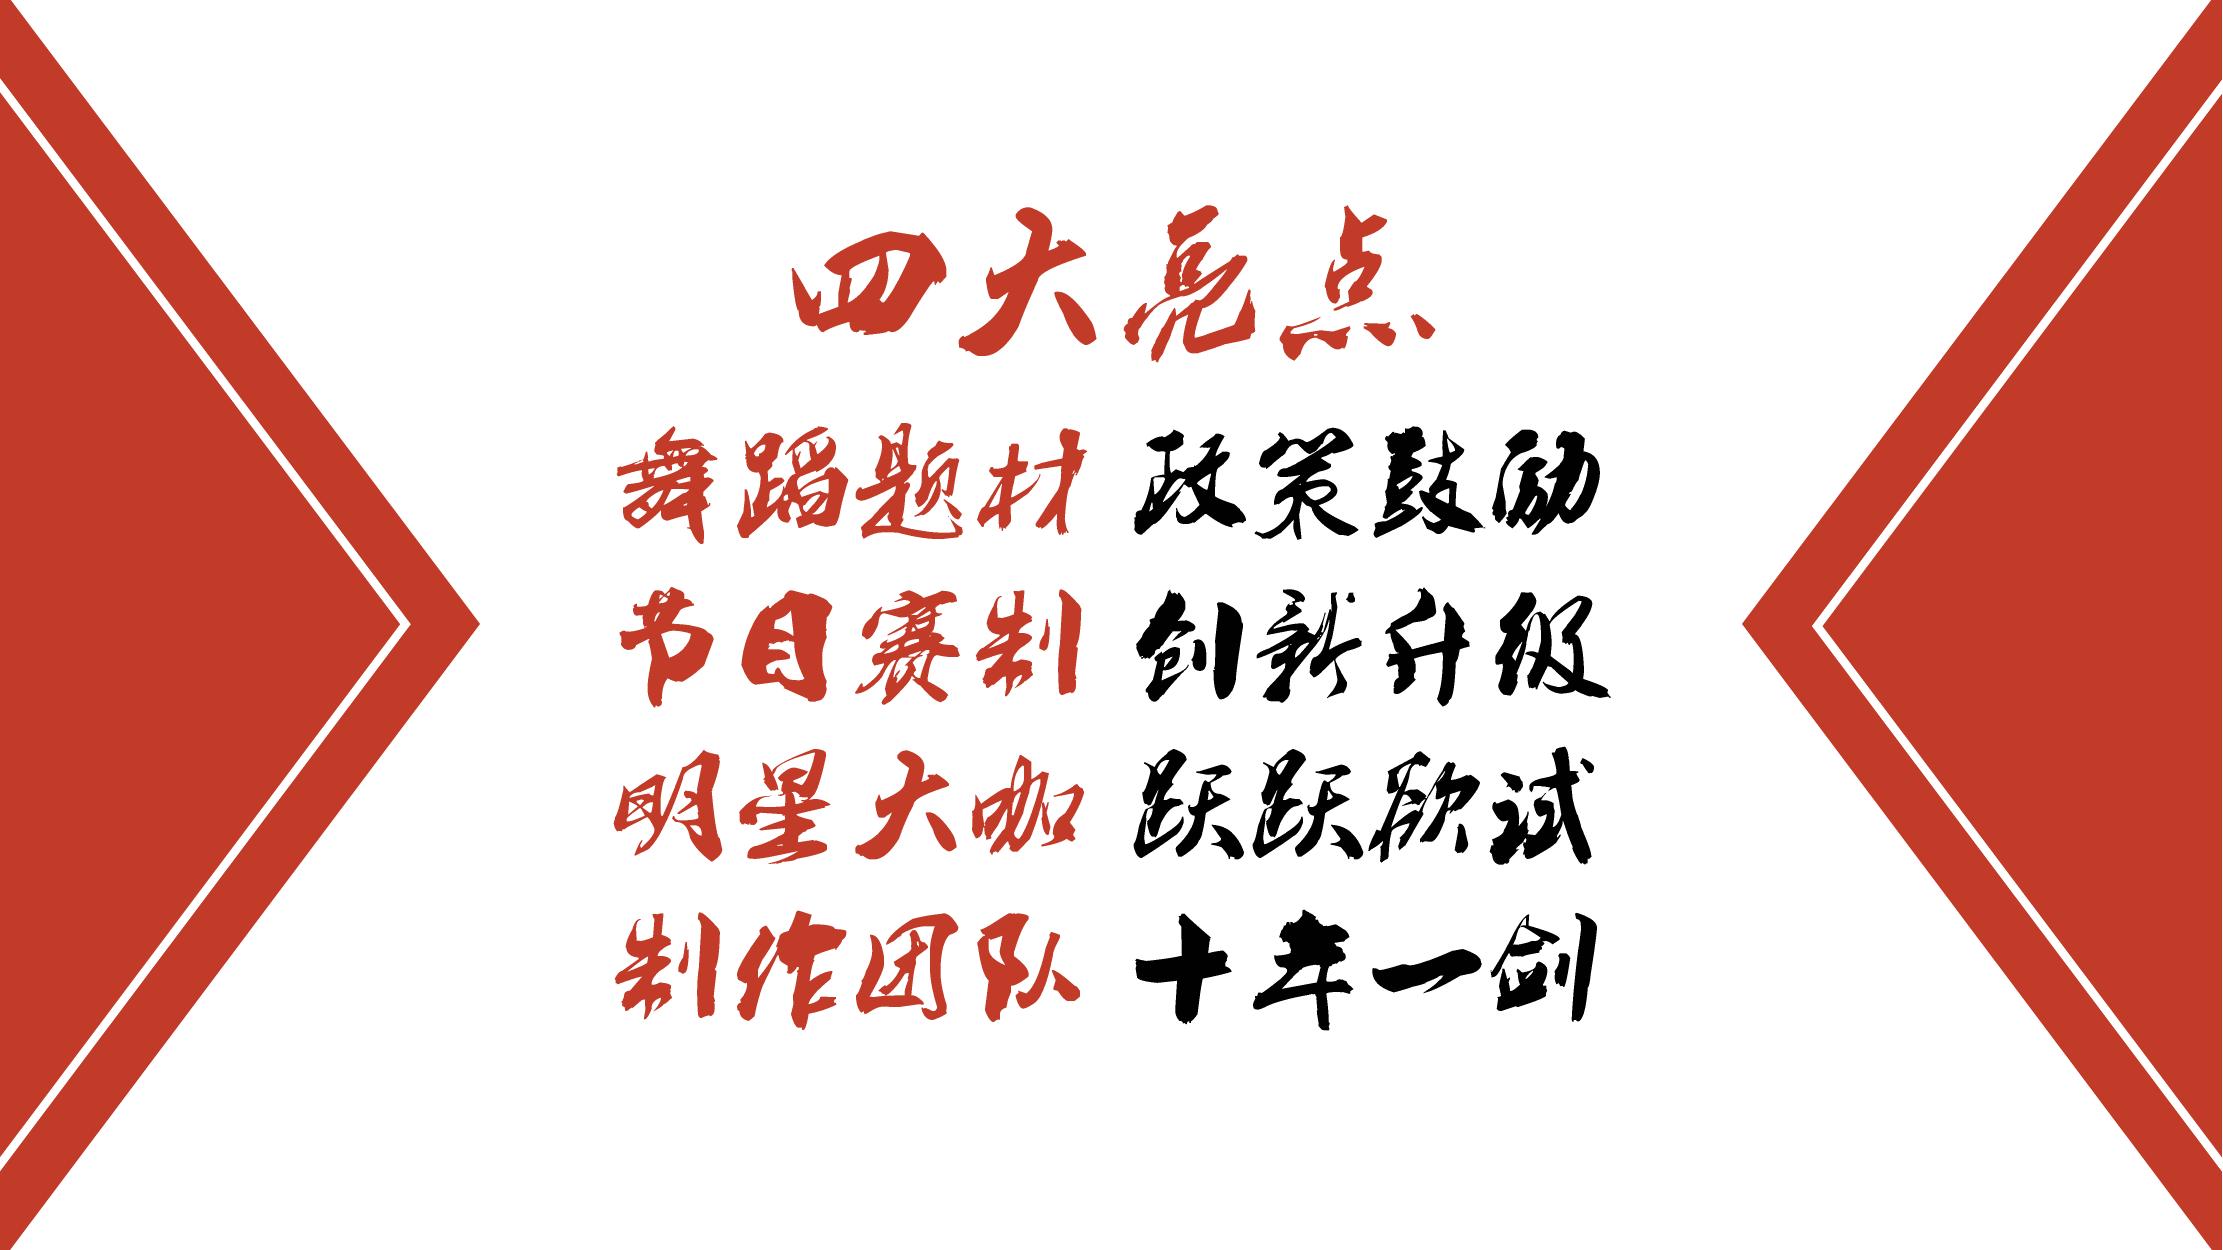 四大亮点
舞蹈题材 政策鼓励
节目赛制 创新升级
明星大咖 跃跃欲试
制作团队 十年一剑